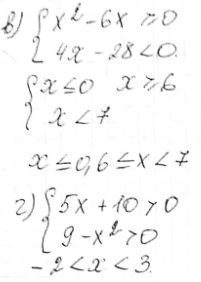 в) { x² - 6x ≥ 0
4x - 28 < 0.
{ x ≤ 0 x ≥ 6
x < 7
x ≤ 0, 6 ≤ x < 7
г) { 5x + 10 > 0
9 - x² > 0
- 2 < x < 3.